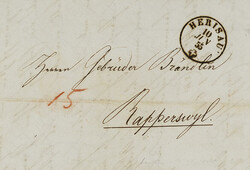 HERISAU
10
55
Herren Gebrüder Brändlin
15
Rapperswyl.